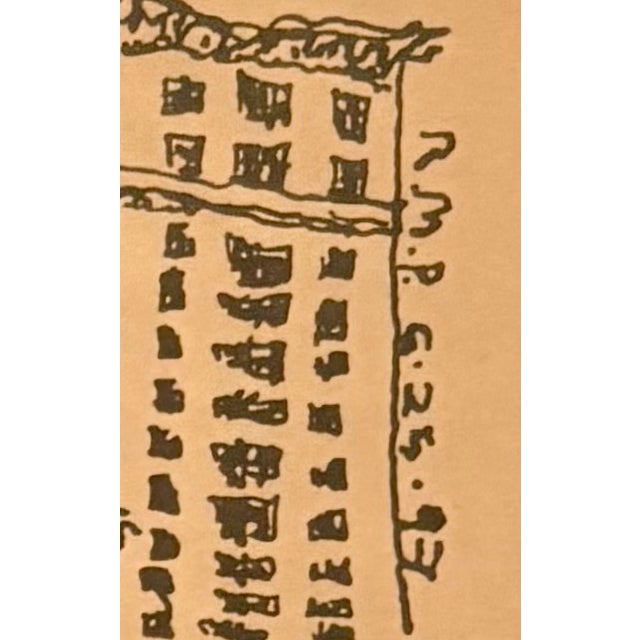 R.M.P. 6.25.93